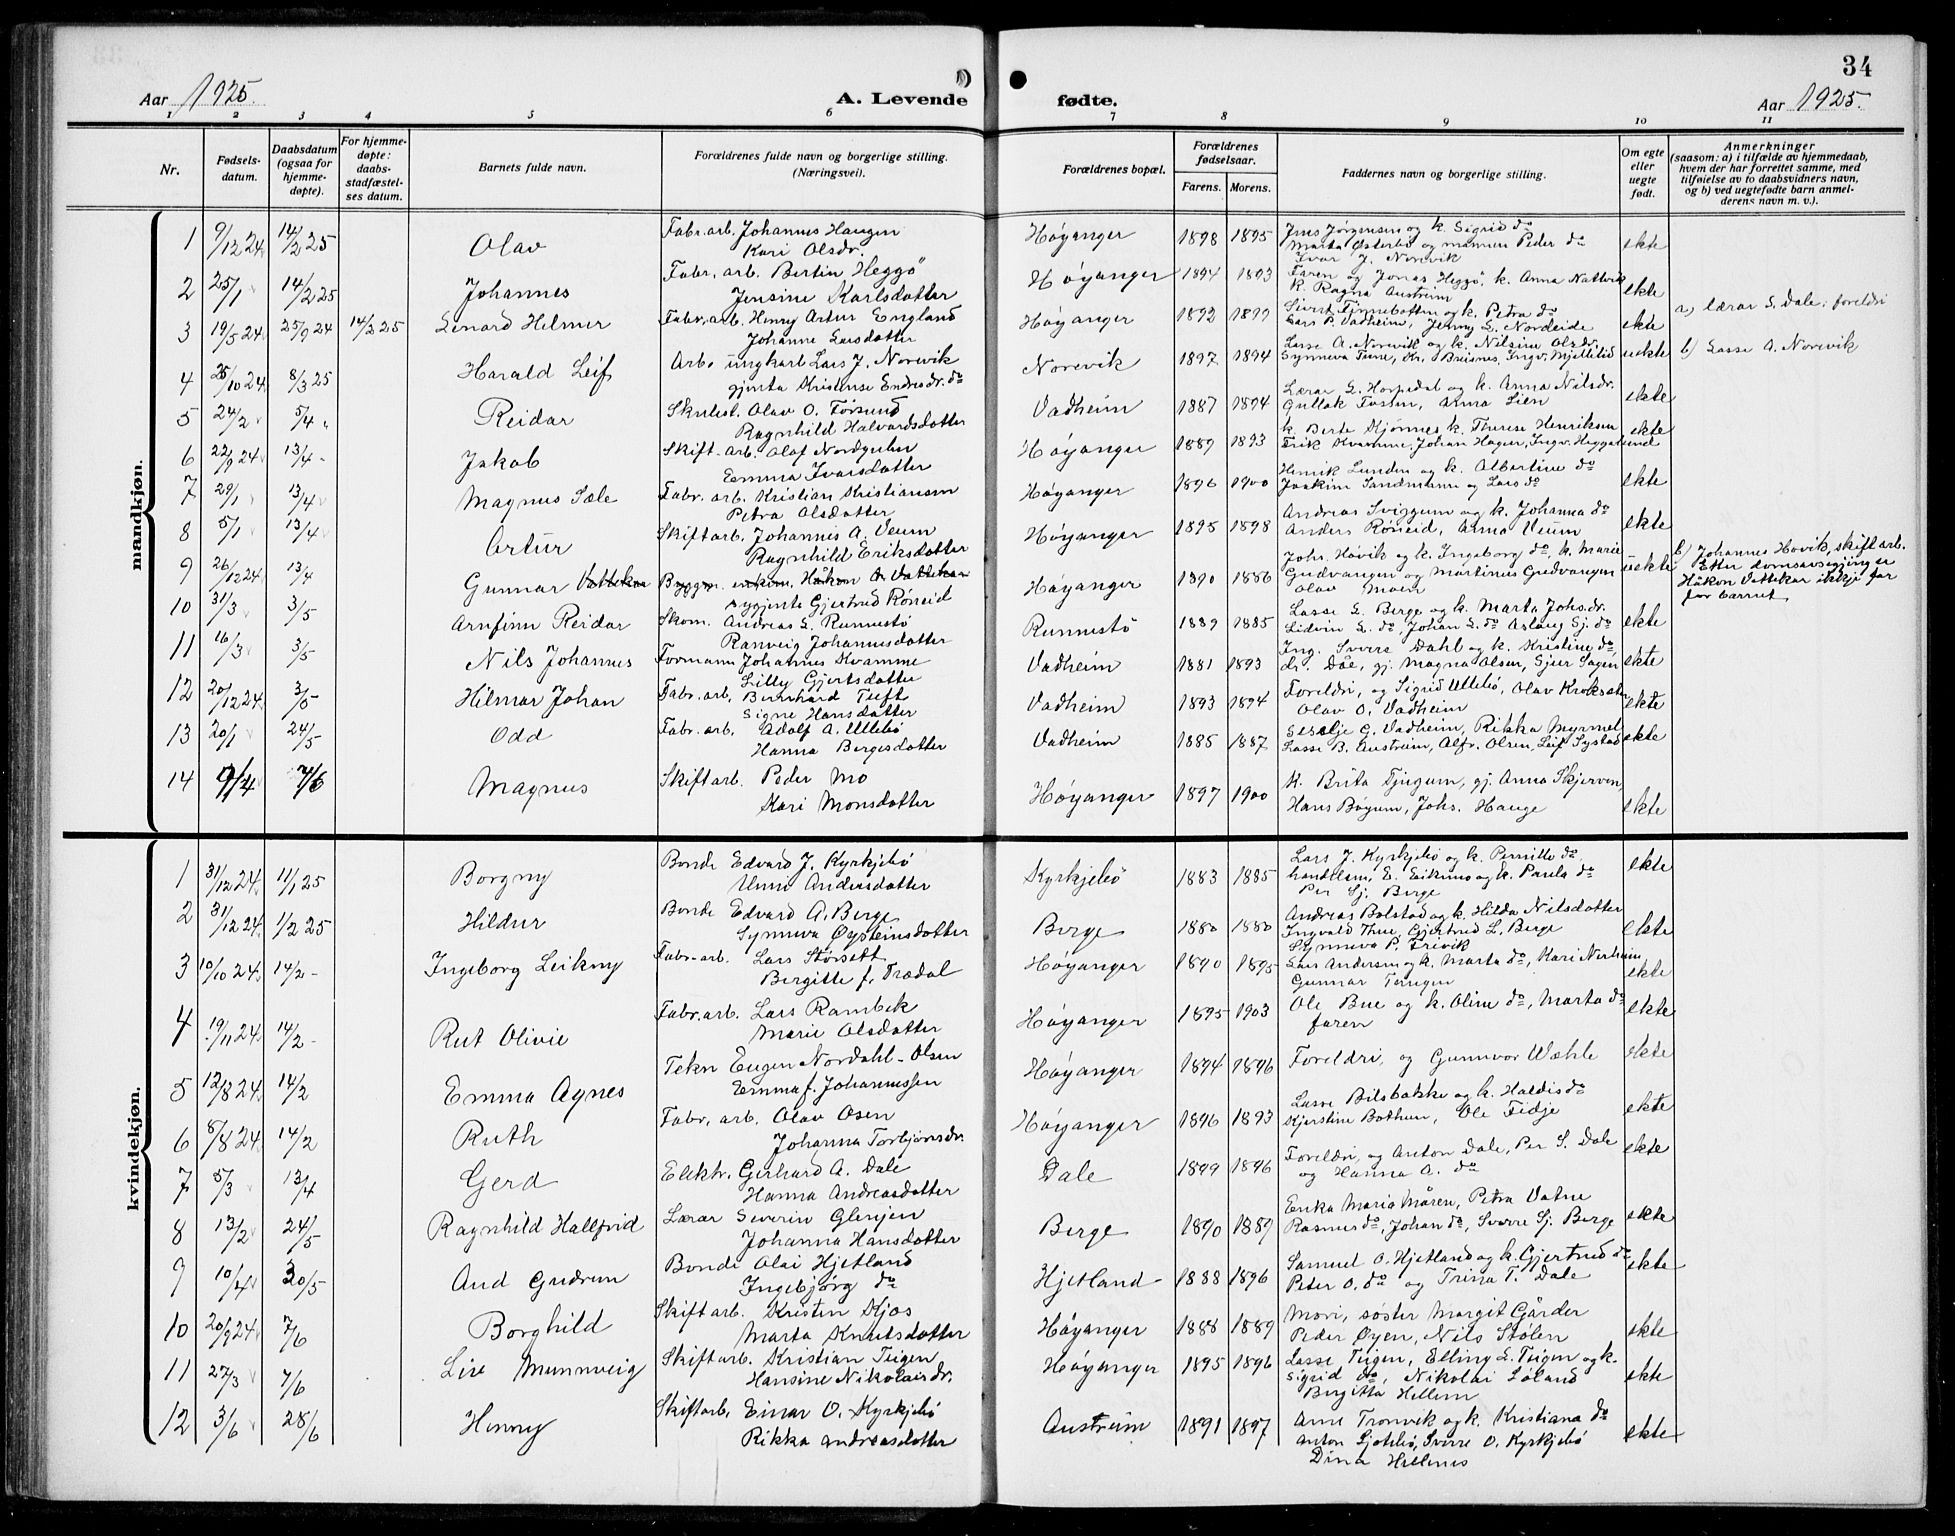 34
Aar 1925.
A. Levende
fødte.
Aar 1925.
1 2 3 4 5 6 7 8 9 10 11
Nr.
Fødsels-
datum.
Daabsdatum
(ogsaa for
hjemme-
døpte).
For hjemme-
døpte:
daabs-
stadfæstel-
ses datum.
Barnets fulde navn.
Forældrenes fulde navn og borgerlige stilling.
(Næringsvei).
Forældrenes bopæl.
Forældrenes
fødselsaar.
Farens. Morens.
Faddernes navn og borgerlige stilling.
Om egte
eller
uegte
født.
Anmerkninger
(saasom: a) i tilfælde av hjemmedaab,
hvem der har forrettet samme, med
tilføielse av to daabsvidners navn,
og b) ved uegtefødte barn anmel-
derens navn m. v.).
mandkjøn.
1 9/12 24 14/2 25 Olav Fabr. arb. Johannes Haugen Høyanger 1898 1895 Jens Jørgensen og k. Sigrid do ekte
Kari Olsdr. Marta Østerbø og mannen Peder do
Ivar J. Norevik
2 25/1 14/2 25 Johannes Fabr. arb. Bertin Heggø Høyanger 1894 1893 Faren og Jonas Heggø, k. Anna Nattvik ekte
Jensine Karlsdotter k. Ragna Austreim
3 19/5 24 25/9 24 14/2 25 Lenard Helmer Fabr. arb. Henry Artur England Høyanger 1892 1899 Sivert Finnebotten og k. Petra do ekte a) lærar S. Dale: foreldri
Johanne Larsdotter Lars P. Vadheim, Jenny L. Nordeide
4 25/10 24 8/3 25 Harald Leif Arb. ungkarl Lars J. Norevik Norevik 1897 1894 Lasse A. Norevik og k. Nilsine Olsdr. uekte b) Lasse A. Norevik
gjenta Kristense Endresdr. do Synneva Tune, Kr. Breisnes, Ingv. Mjellelid
5 24/2 5/4 Reidar Skulest. Olav O. Førsund Vadheim 1887 1894 Lærar L. Horpedal og k. Anna Nilsdr. ekte
Ragnhild Halvardsdotter Gullak Fossen, Anna Lien
6 22/9 24 13/4 Jakob Skift-arb. Olaf Nordgulen Høyanger 1889 1893 k. Berte Kjønnes k. Therese Henriksen ekte
Emma Ivarsdotter Erik Kvamme, Johan Hagen, Ingv. Heggelund
7 29/1 13/4 Magnus Sæle Fabr. arb. Kristian Kristiansen Høyanger 1896 1900 Henrik Lunden og k. Albertine do ekte
Petra Olsdotter Joakim Sandmann og Lars do
8 5/1 13/4 Artur Skiftarb. Johannes A. Veum Høyanger 1895 1898 Andreas Svingum og k. Johanna do ekte
Ragnhild Eriksdotter Anders Røneid, Anna Veum
9 26/12 24 13/4 Gunnar Vattekar Høyanger 1890 1886 Johs. Hovik og k. Ingeborg do, k. Marie uekte b) Johannes Hovik, skiftarb.
sygjente Gjertrud Røneid Gudvangen og Martinus Gudvangen Etter domsavsegjing er
Olav Moen Håkon Vattekar ikkje far
for barnet.
10 31/3 3/5 Arnfinn Reidar Skom. Andreas L. Runnestø Runnestø 1889 1885 Lasse L. Berge og k. Marta Johs.dr. ekte
Ranveig Johannesdotter Lidvin L. do, Johan L. do Aslaug Sj. do
11 16/3 3/5 Nils Johannes Formann Johannes Kvamme Vadheim 1881 1893 Ing. Sverre Dahl og k. Kristine do, ekte
Lilly Gjertsdotter dr. Dåe, gj. Magna Olsen, Sjur Sagen
12 20/12 24 3/5 Hilmar Johan Fabr. arb. Bernhard Tuft Vadheim 1893 1894 Foreldri, og Sigrid Ullebø, Olav Kroksæter ekte
Signe Hansdotter Olav O. Vadheim
13 20/1 24/5 Odd Fabr. arb. Adolf A. Ullebø Vadheim 1885 1887 Seselje G. Vadheim, Rikka Myrmel ekte
Hanna Bergesdotter Lasse B. Austreim, Alfr. Olsen, Leif Systad
14 9/4 7/6 Magnus Skiftarb. Peder Mo Høyanger 1897 1900 k. Brita Tjugum, gj. Anna Skjerven ekte
Kari Monsdotter Hans Bøyum, Johs. Hauge
kvindekjøn.
1 31/12 24 11/1 25 Borgny Bonde Edvard J. Kyrkjebø Kyrkjebø 1883 1885 Lars J. Kyrkjebø og k. Pernille do ekte
Unni Andersdotter handelsm. E. Eikemo og k. Paula do
Per Sj. Berge
2 31/12 24 1/2 25 Hildur Bonde Edvard A. Berge Berge 1880 1880 Andreas Bolstad og k. Hilda Nilsdotter ekte
Synneva Øysteinsdotter Ingvald Thue, Gjertrud L. Berge
Synneva P. Trivik
3 10/10 24 14/2 Ingeborg Leikny Fabr-arb. Lars Størsett Høyanger 1890 1895 Lars Andersen og k. Marta do, Kari Nerheim ekte
Bergitte f. Trædal Gunnar Teringen
4 19/11 24 14/2 Rut Olivie Fabr. arb. Lars Rambek Høyanger 1895 1903 Ole Bue og k. Oline do, Marta do ekte
Marie Olsdotter faren
5 12/8 24 14/2 Emma Agnes Tekn Eugen Nordahl-Olsen Høyanger 1894 1896 Foreldri, og Gunnvor Wæhle ekte
Emma f. Johannessen
6 5/8 24 14/2 Ruth Fabr. arb. Olav Osen Høyanger 1896 1893 Lasse Bilsbakke og k. Haldis do ekte
Johanna Torbjørnsdr. Kjerstine Bothun, Ole Fidje
7 5/3 13/4 Gerd Elektr. Gerhard A. Dale Dale 1899 1896 Foreldri, og Anton Dale, Per S. Dale ekte
Hanna Andreasdotter og Hanna A. do
8 13/2 24/5 Ragnhild Hallfrid Lærar Severin Glenjen Berge 1890 1889 Enka Maria Måren, Petra Vatne ekte
Johanna Hansdotter Rasmus do, Johan do, Sverre Sj. Berge
9 10/4 30/5 Aud Gudrun Bonde Olai Hjetland Hjetland 1888 1896 Samuel O. Hjetland og k. Gjertrud do ekte
Ingebjørg do Peter O. do og Trina T. Dale
10 20/9 24 7/6 Borghild Skiftarb. Kristen Kjos Høyanger 1888 1889 Mori, søster Margit Gårder ekte
Marta Knutsdotter Peder Øyen, Nils Stølen
11 27/3 7/6 Liv Munnveig Skiftarb. Kristian Teigen Høyanger 1895 1896 Lasse Teigen, Elling L. Teigen og k. ekte
Hansine Nikolaisdr. Sigrid do, Nikolai Løland
Birgitta Hellem
12 3/6 28/6 Henny Skiftarb. Einar O. Kyrkjebø Austreim 1891 1897 Arne Tronvik og k. Kristiana do ekte
Rikka Andreasdotter Anton Ljotebø, Sverre O. Kyrkjebø
Dina Hellenes